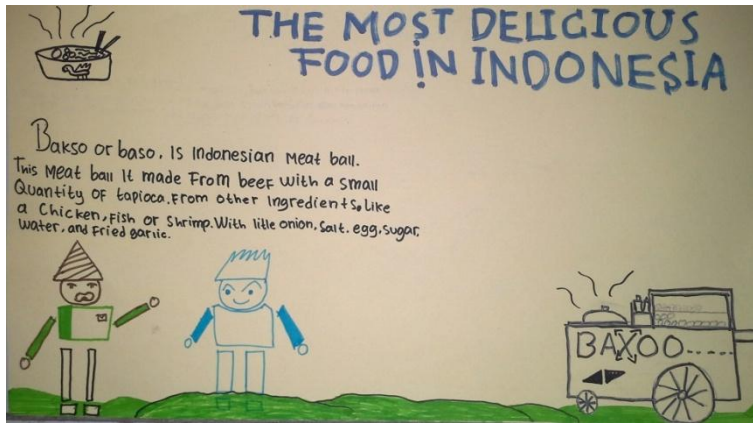 THE MOST DELICIOUS
FOOD IN INDONESIA
Bakso or baso, Is Indonesian Meat ball.
This Meat ball It made From beef With a small
Quantity Of tapioca. From other Ingredients, Like
a Chicken, Fish or Shrimp. With litle onion, Salt. egg, sugar,
Water, and Fried Garlic.
BAXOO------